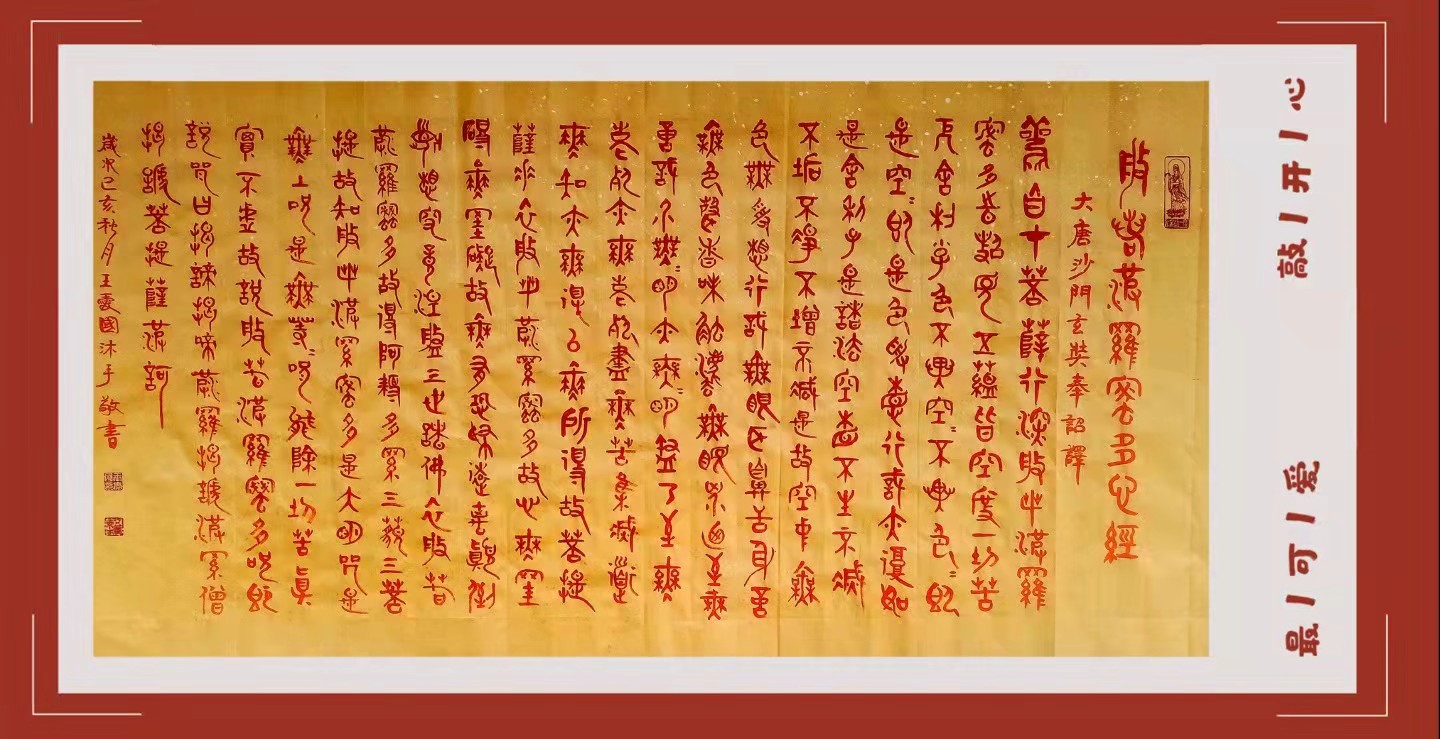 般若波羅密多心經
大唐沙門玄奘奉詔譯
觀自在菩薩行深般若波羅
密多時照見五蘊皆空度一切苦
厄舍利子色不異空〃不異色〃即
是空〃即是色受想行識亦復如
是舍利子是諸法空相不生不滅
不垢不淨不增不減是故空中無
色無受想行識無眼耳鼻舌身意
無色聲香味觸法無眼界乃至無
意識界無〃明亦無〃明盡乃至無
老死亦無老死盡無苦集滅道
無知亦無得以無所得故菩提
薩埵依般若波羅密多故心無罣
礙無罣礙故無有恐怖遠離顛倒
夢想究竟涅槃三世諸佛依般若
波羅密多故得阿耨多羅三藐三菩
提故知般若波羅密多是大明咒是
無上咒是無等〃咒能除一切苦真
實不虛故說般若波羅密多咒即
說咒曰揭諦揭諦波羅揭諦波羅僧
揭諦菩提薩婆訶
歲次己亥秋月王雲國沐手敬書
最丨可丨爱 敲丨开丨心